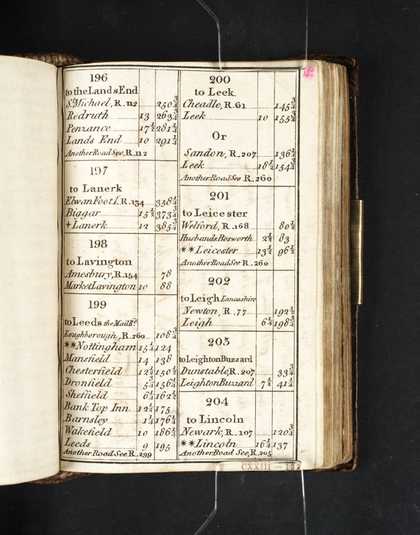 196
to the Lands End
St. Michael, R. 112 250¾
Redruth 13 263¾
Penzance 17½ 281¼
Lands End 10 291¼
Another Road See, R. 112
197
to Lanerk
Elvan Foot I., R. 134 358¼
Biggar 15½ 373¾
+ Lanerk 12 385¾
198
to Lavington
Amesbury, R. 154 78
Market Lavington 10 88
199
to Leeds the Mail Rd.
Loughborough, R. 260 108¾
**Nottingham 15¼ 124
Mansfield 14 138
Chesterfield 12½ 150½
Dronfield
Sheffield
Bank Top Inn 12½ 175
Barnsley 1¼ 176¼
Wakefield 10
Leeds 9 195
Another Road See R. 299
200
to Leek
Cheadle, R. 61
Leek 10
Or
Sandon, R. 207
Leek
Another Road See R. 260
201
to Leicester
Welford, R. 168 80½
Husbands Bosworth 2½ 83
**Leicester
Another Road See R. 260
202
to Leigh Lancashire
Newton, R. 77
Leigh
203
to Leighton Buzzard
Dunstable, R. 207
Leighton Buzzard
204
to Lincoln
Newark, R. 107
**Lincoln 16¼ 137
Another Road See, R. 205